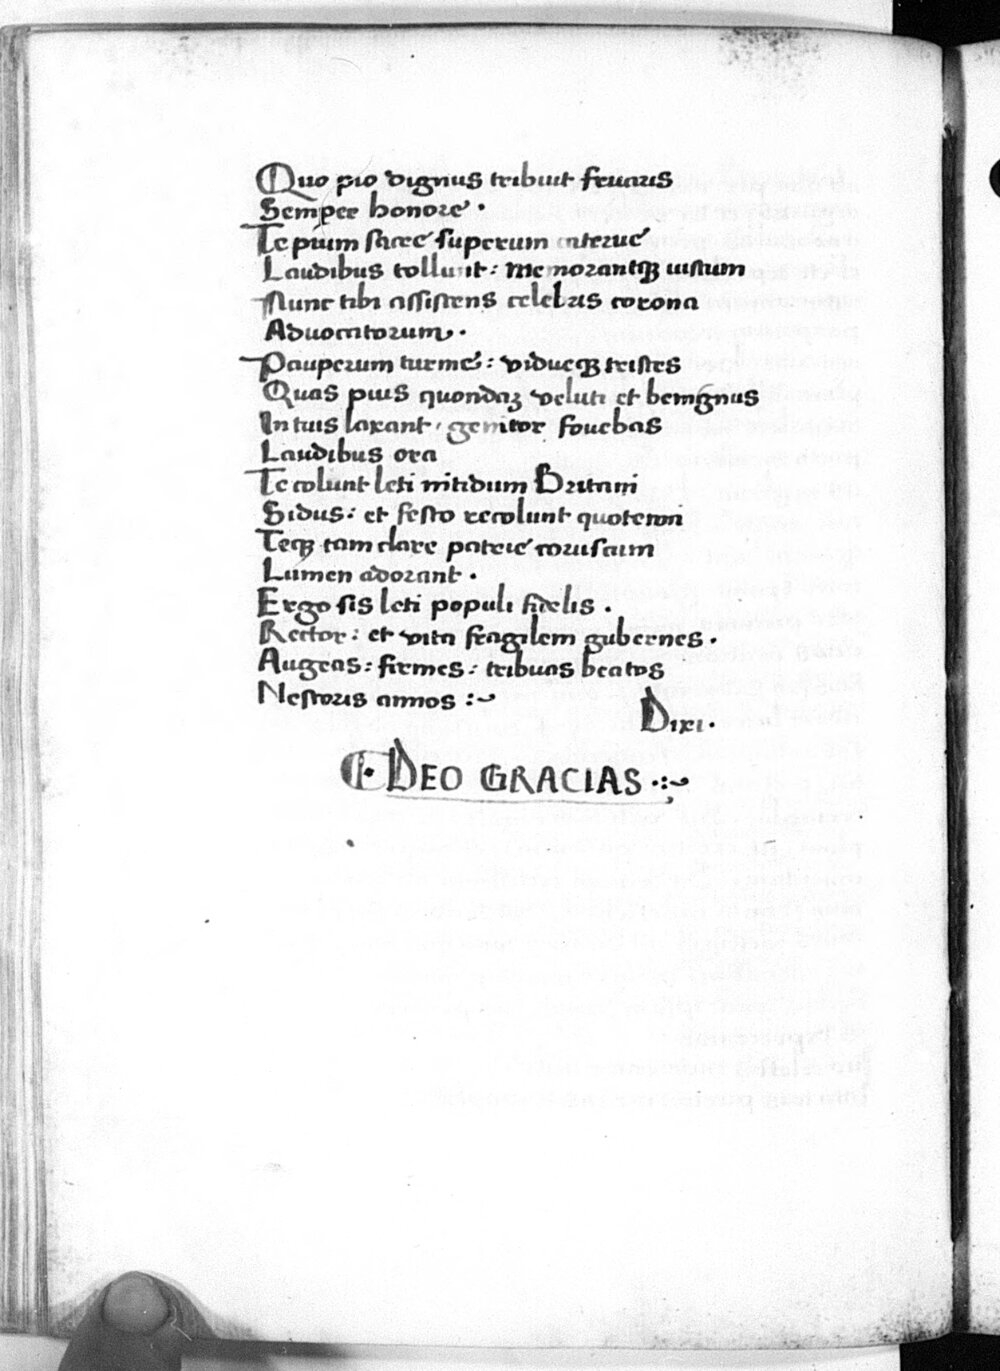 Quo pio dignus tribuit fruaris
Semper honore .
Te pium sacre superum caterue
Laudibus tollunt : memorantqꝫ iustum
Nunc tibi assistens celebris corona
Aduocatorum .
Pauperum turme : vidueqꝫ tristes
Quas pius quondaꝫ veluti et benignus
In tuis laxant, genitor fouebas
Laudibus ora
Te colunt leti nitidum Britani
Sidus : et festo recolunt quotenni
Teqꝫ tam clare patrie coruscum
Lumen adorant .
Ergo sis leti populi fidelis .
Rector : et vita fragilem gubernes .
Augeas : firmes : tribuas beatos
Nestoris annos :~
Dixi .
DEO GRACIAS .:~